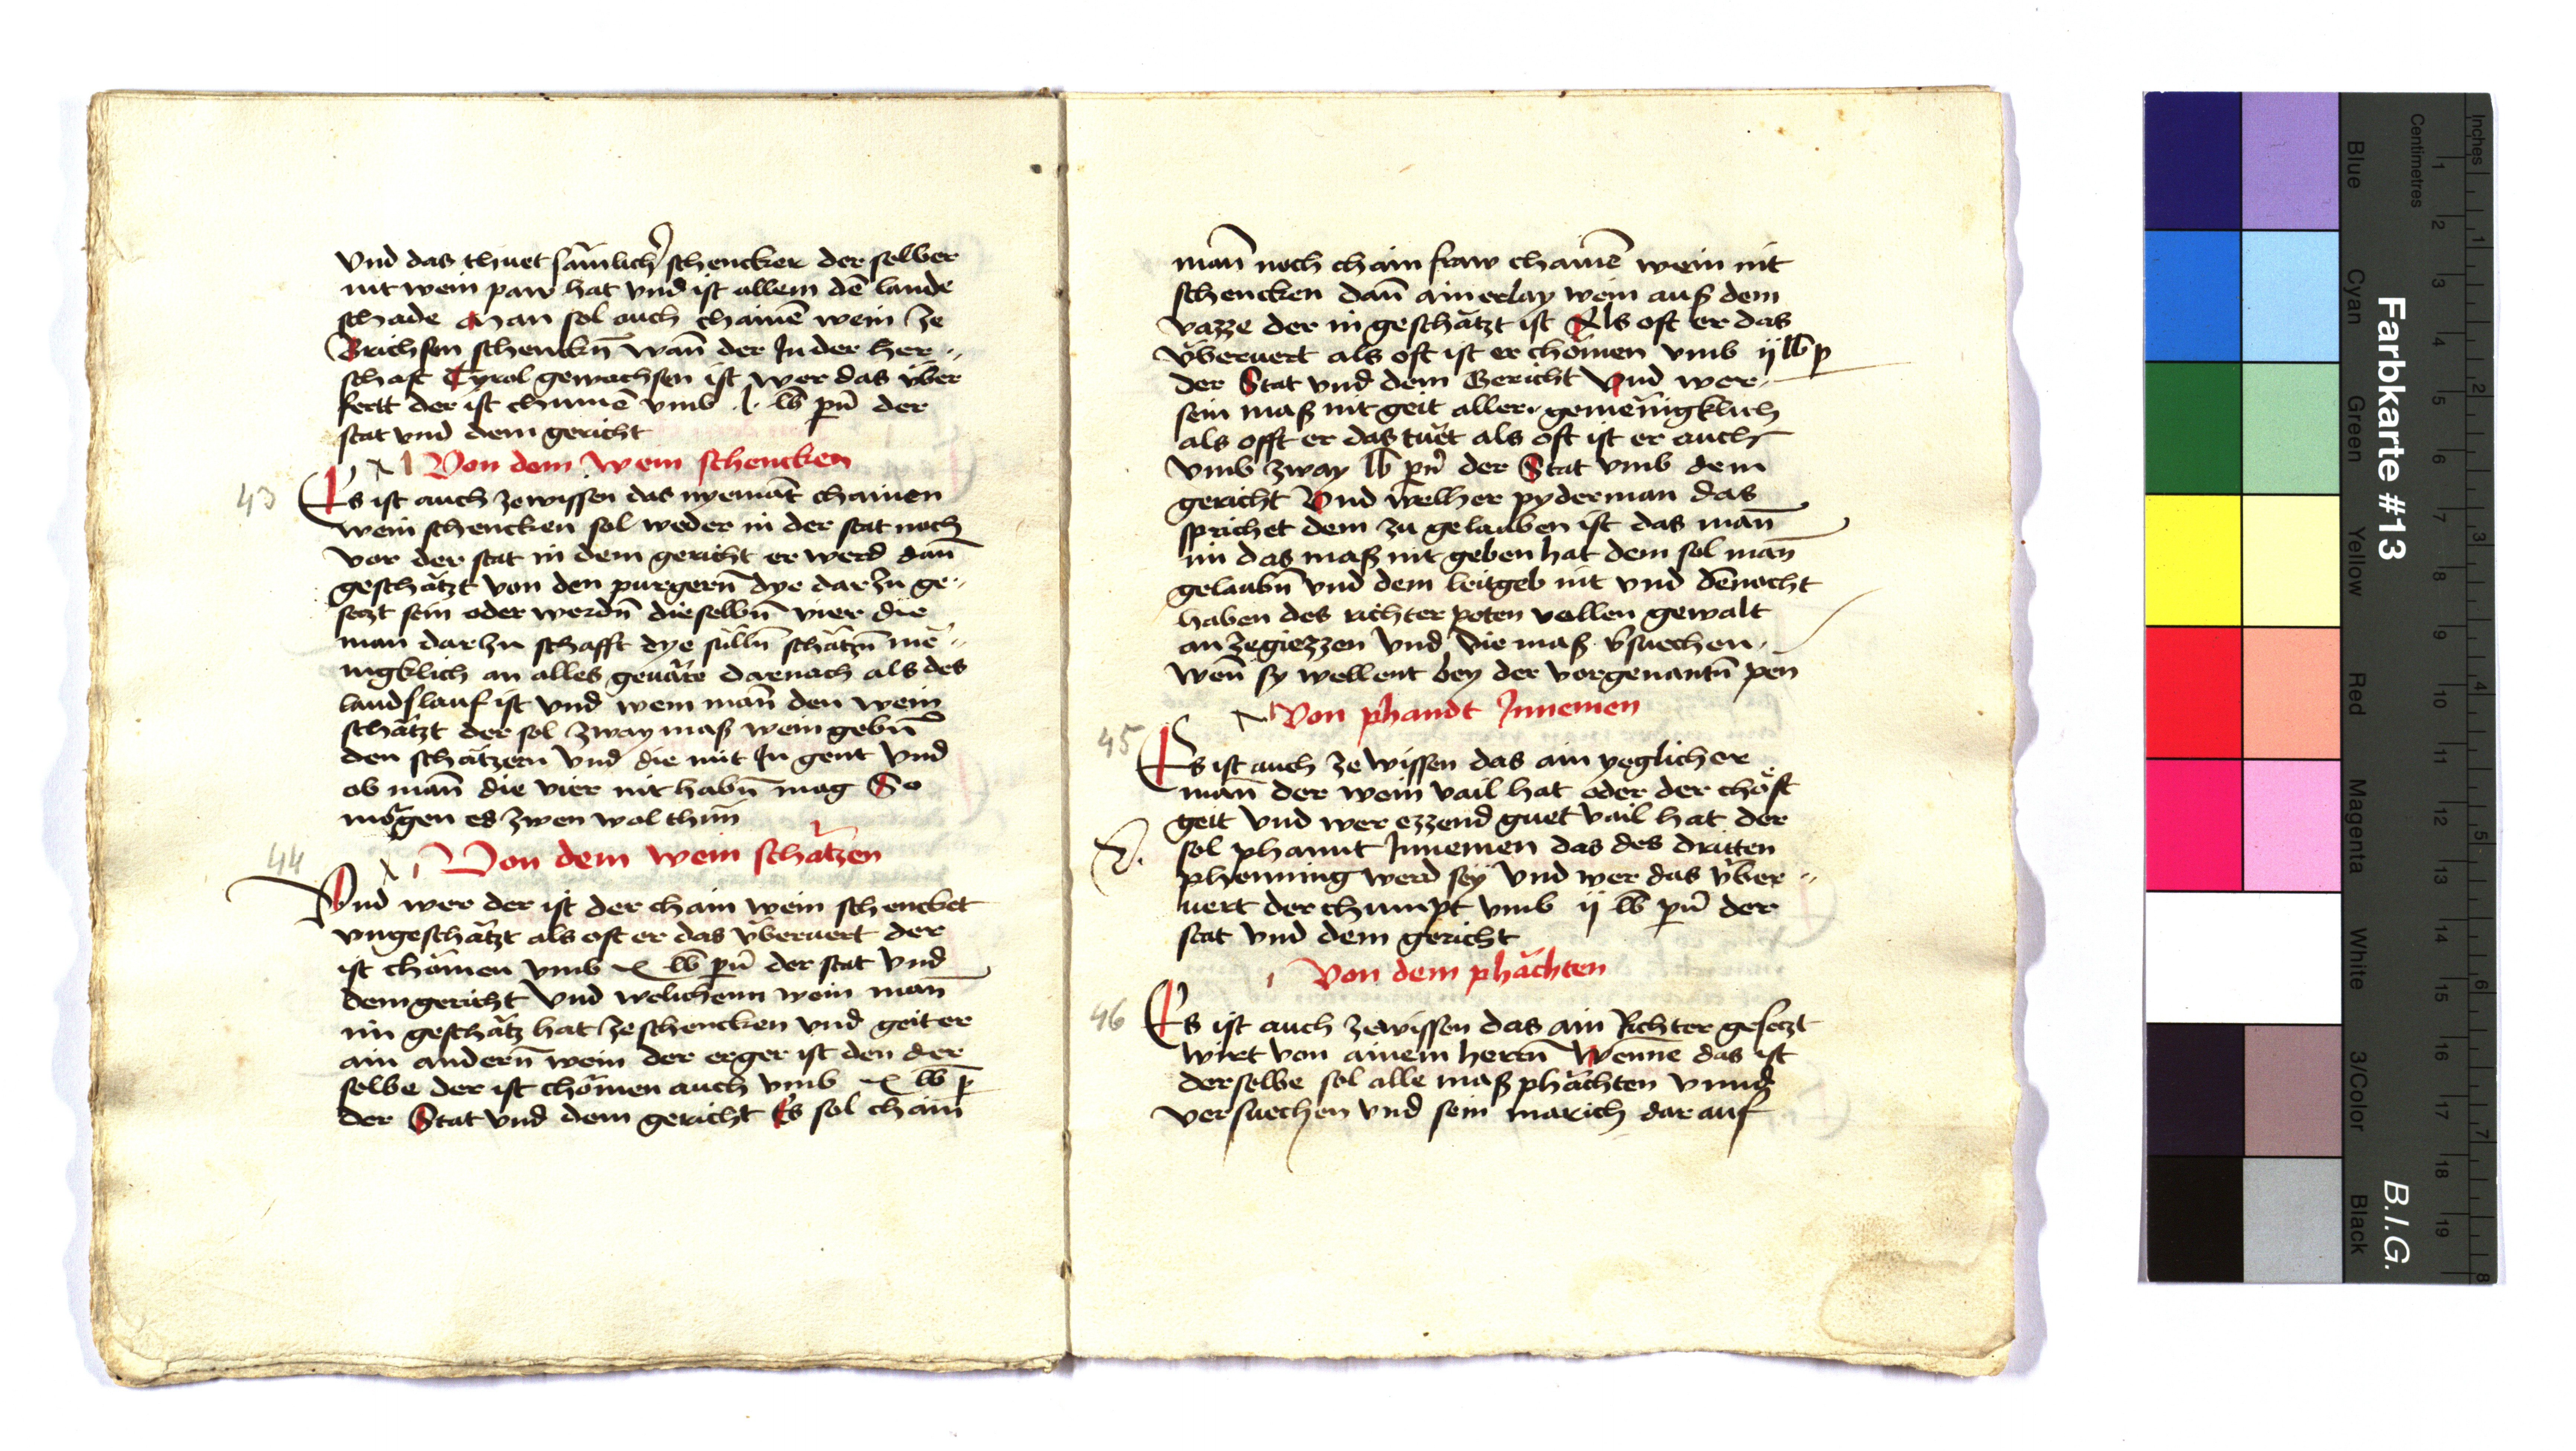 Vnd das thuet sämlich schencker der selber
nit wein paw hat vnd ist allem dē lande
schade Man sol auch chainē wein ze
Brichsen schenckn̄ wan̄ der In der her„
schaft Tyrol gewachsen ist wer das über
fertt der ist chumē vmb .l. lb pn̄ der
stat vnd dem gericht
Von dem wein schencken
43 Es ist auch ze wissen das nyemāt chainen
wein schencken sol weder in der stat noch
vor der stat in dem gericht er werd dan̄
geschätzt von den purgern̄ dye dar zu ge„
setzt sein oder werdn̄ dieselbn̄ vier die
man dar zu schafft dye sulln̄ schätzn̄ mē„
nigklich an alles geuäre darnach als des
lands lauf ist vnd wem man̄ den wein
schätzt der sol zway maß wein gebn̄
den schätzern vnd die mit In gent vnd
ob man̄ die vier nit habn̄ mag So
mögen es zwen wol thun̄
Von dem wein schätzen
44 Vnd wer der ist der chain wein schencket
vngeschätzt als oft er das überuert der
ist chömen vmb x lb pn̄ der stat vnd
dem gericht vnd welichenn wein man̄
im geschätz hat ze schencken vnd geit er
ain andern̄ wein der erger ist den der
selbe der ist chömen auch vmb x lb p
der Stat vnd dem gericht Es sol chain̄
man̄ noch chain fraw chainē wein nit
schencken dan̄ ainerlay wein auß dem
vazze der in geschätzt ist Als oft er das
überuert als oft ist er chömen vmb ij lb p
der Stat vnd dem Gericht Vnd wer
sein maß nit geit aller„ gemēnigklich
als offt er das tuet als oft ist er auch
vmb zway lb pn̄ der Stat vmb dem
gericht Vnd welher pyderman das
sprichet dem zu gelauben ist das man̄
im das maß nit geben hat dem sol man̄
gelaubn̄ vnd dem leitgeb nit vnd dēnacht
haben des richter poten vollen gewalt
an zegiezzen vnd die maß v̄suechen
wen̄ sy wellent bey der vorgenantn̄ pen
Von phandt Innemen
45 Es ist auch ze wissen das ain yeglicher
man̄ der wein vail hat oder der chöst
geit vnd wer ezzend guet vail hat der
sol phannt Innemen das des dritten
phenning werd sey vnd wer das über„
uert der chumpt vmb ij lb pn̄ der
stat vnd dem gericht
Von dem phächten
46 Es ist auch ze wissen das ain Richter gesetzt
wirt von ainem herrn̄ Wenne das ist
derselbe sol alle maß phächten vnnd
versuechen vnd sein marich dar auf
Farbkarte #13
B.I.G.
Inches 1 2 3 4 5 6 7 8
Centimetres 1 2 3 4 5 6 7 8 9 10 11 12 13 14 15 16 17 18 19
Blue
Cyan
Green
Yellow
Red
Magenta
White
3/Color
Black